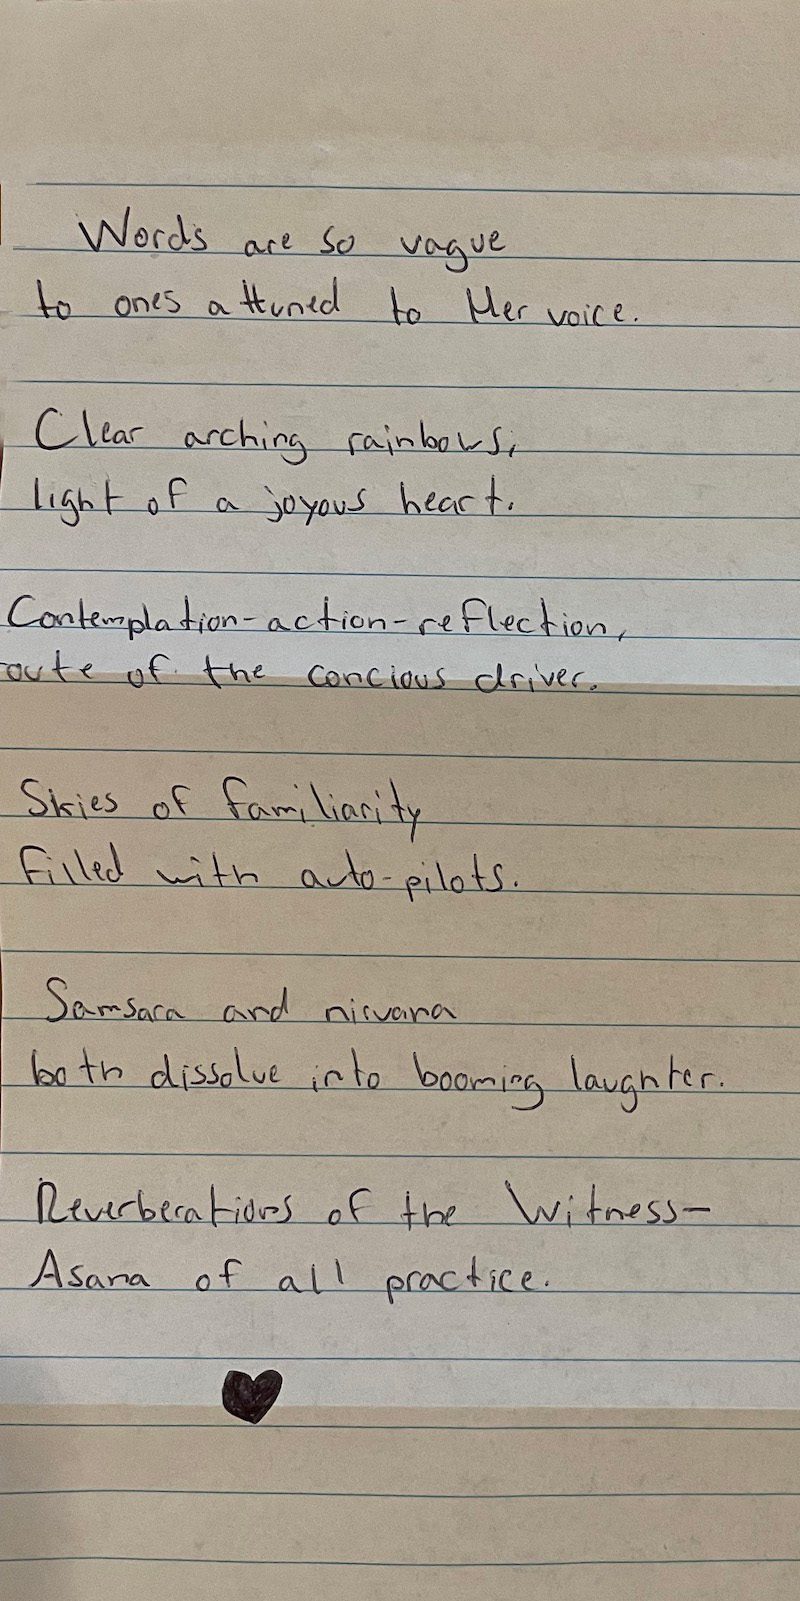 Words are so vague
to ones attuned to Her voice.
Clear arching rainbows,
light of a joyous heart.
Contemplation-action-reflection,
route of the concious driver.
Skies of familiarity
filled with auto-pilots.
Samsara and nirvana
both dissolve into booming laughter.
Reverberations of the Witness-
Asana of all practice.